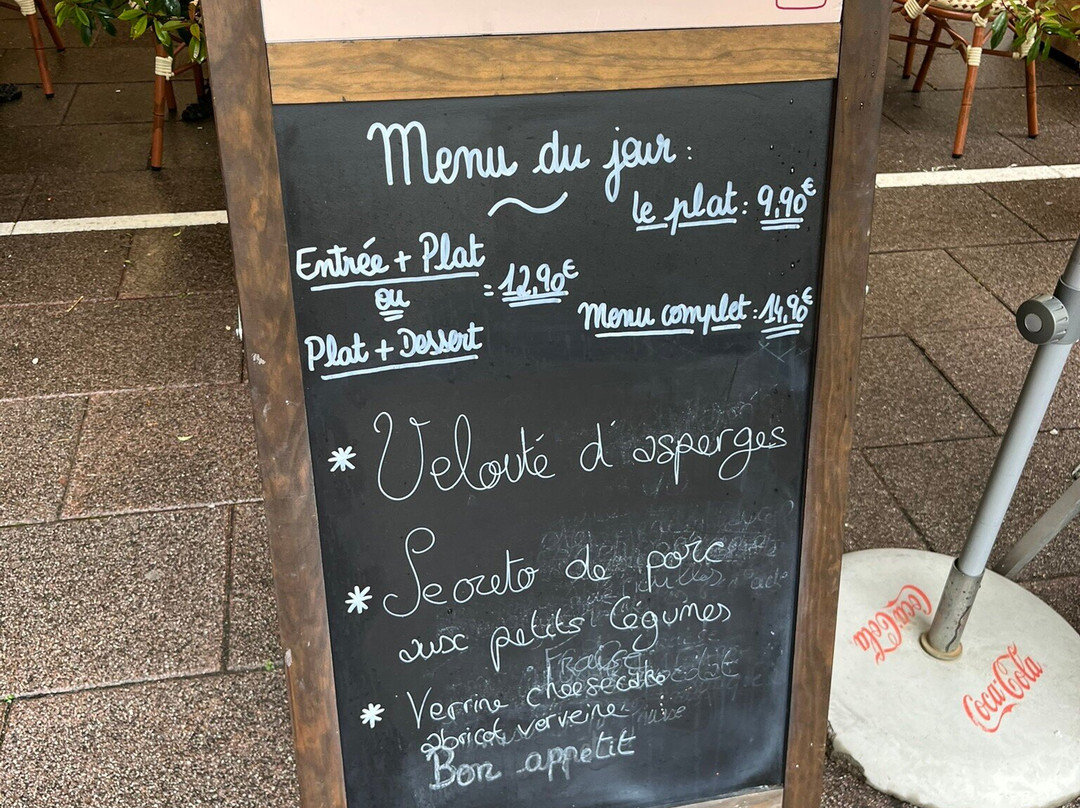 Menu du jour:
le plat: 9,90€
Entrée + Plat
ou
Plat + Dessert
= 12,90€
Menu complet: 14,90€
* Velouté d'asperges
* Secreto de porc
aux petits légumes
* Verrine cheesecake
abricot verveine
Bon appetit
Coca-Cola
Coca-Cola